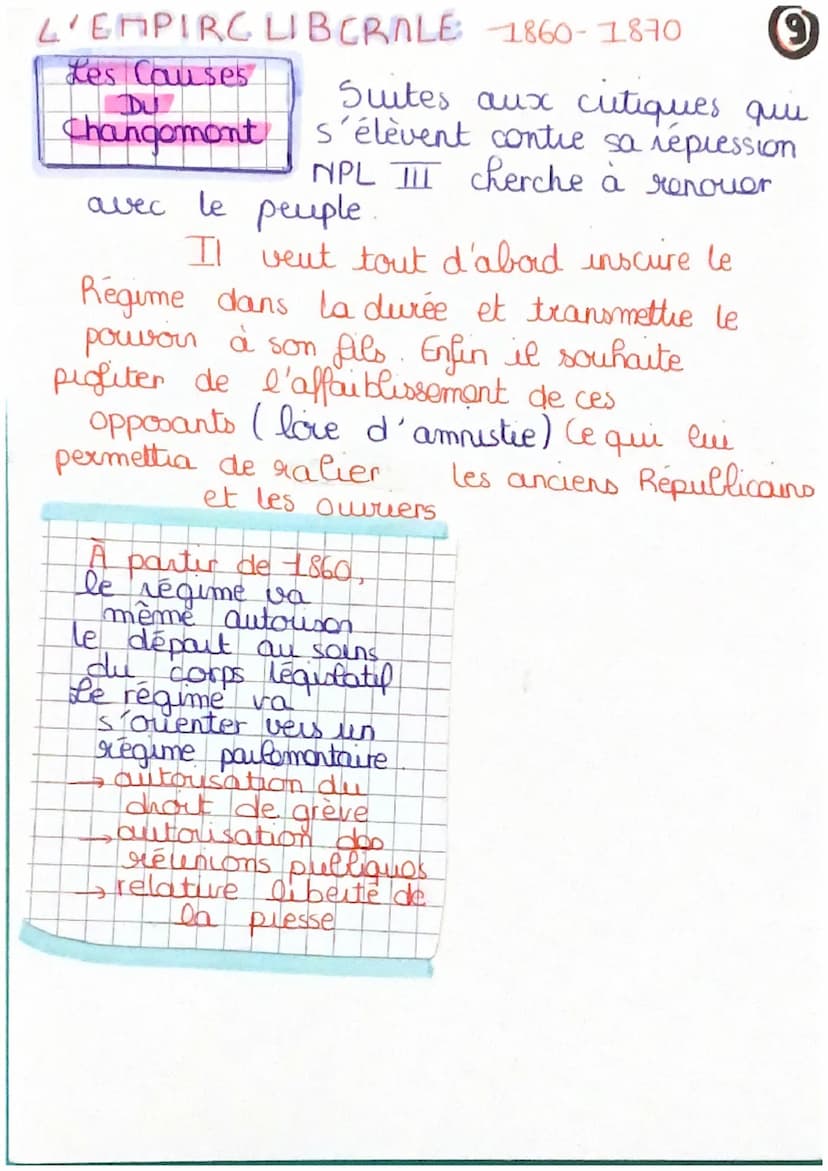 L'EMPIRE LIBERALE 1860-1870
9
Les Causes
DU
Changement
Suites aux critiques qui
s'élèvent contre sa répression
NPL III cherche à renouer
avec le peuple.
Il veut tout d'abord inscrire le
Régime dans la durée et transmettre le
pouvoir à son fils. Enfin il souhaite
profiter de l'affaiblissement de ces
opposants (loie d'amnistie) Ce qui lui
permettra de ralier les anciens Républicains
et les ouvriers
À partir de 1860,
le régime va
même autoriser
le départ au soins
du corps législatif
Le régime va
s'orienter vers un
régime parlementaire.
→ autorisation du
droit de grève
→ autorisation des
réunions publiques
→ relative liberté de
la presse